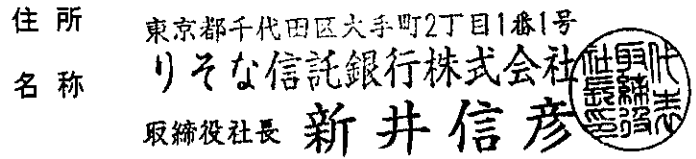 住所 東京都千代田区大手町2丁目1番1号
名称 りそな信託銀行株式会社
取締役社長 新井信彦
代表取締役社長之印